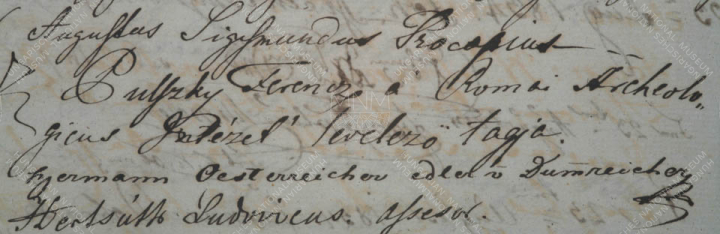 Augustus Sigismundus Procopius
Pulszky Ferencz a' Romai Archeolo„
gicus Intézet' levelező tagja.
Hermann Oesterreicher edler v Dum̄reicher
Ludovicus. assesor.